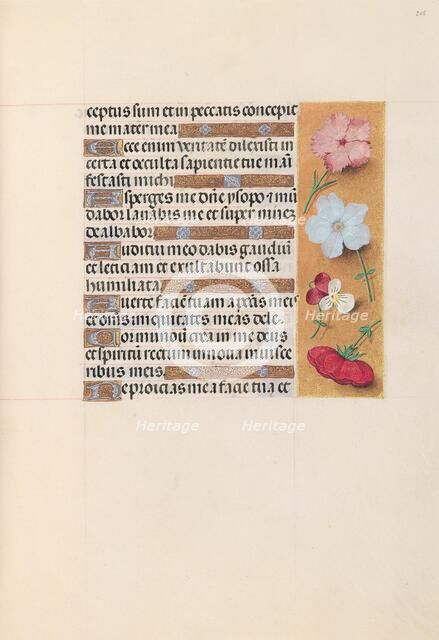 206
ceptus sum et in peccatis concepit
me mater mea
Ecce enim veritatē dilexisti in
certa et occulta sapientie tue māi
festasti michi
Asperges me dn̄e ysopo et mū
dabor lavabis me et super nivē
de albabor
Auditui meo dabis gaudiū
et leticiam et exultabunt ossa
humiliata
Averte faciē tuam a pc̄tis meis
et om̄s iniquitates meas dele
Cor mundū crea in me deus
et spiritū rectum innova in visce
ribus meis
Ne proicias me a facie tua et
Heritage
Heritage
Heritage
Heritage
Heritage
Heritage